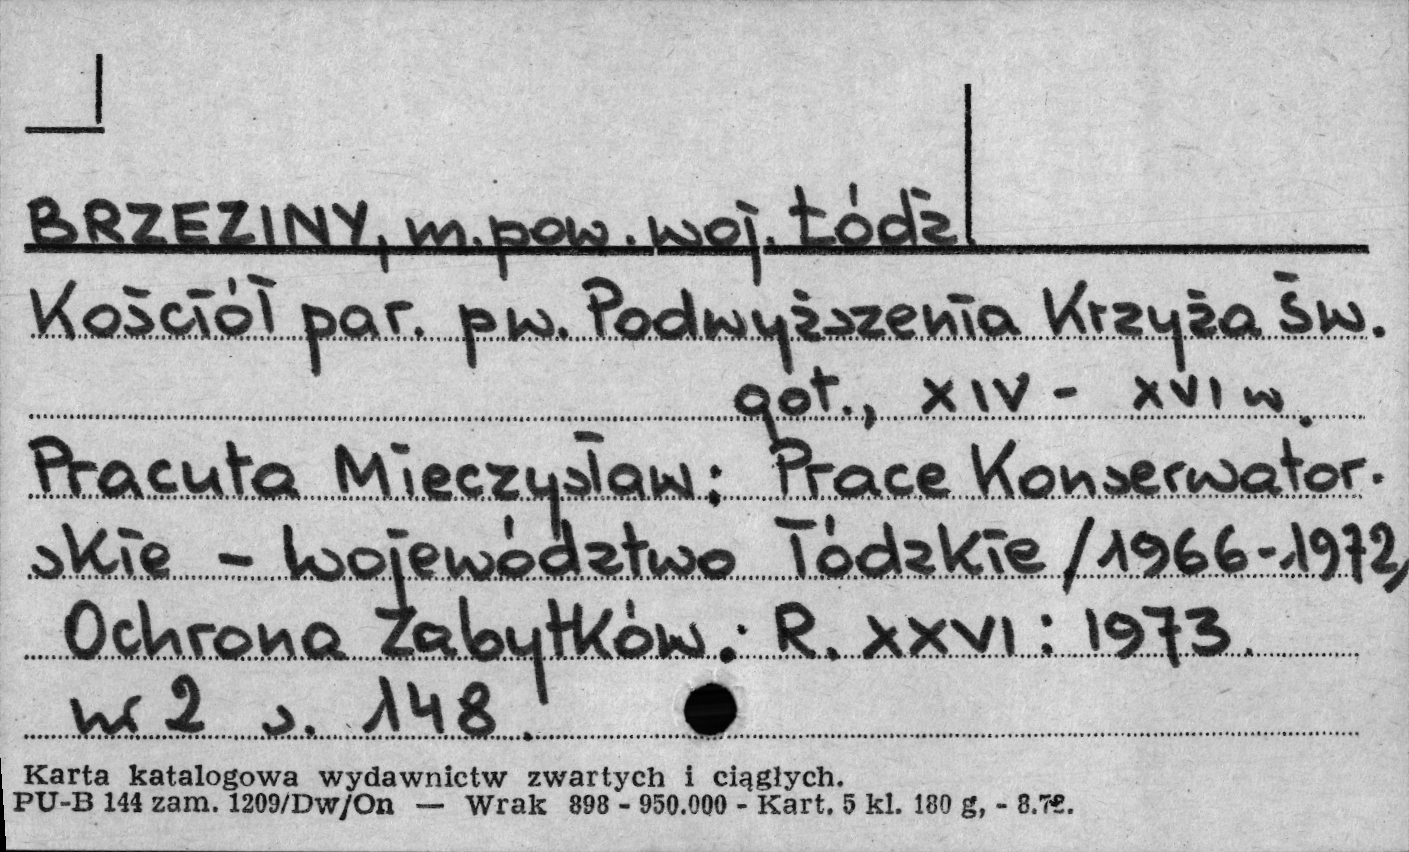 BRZEZINY, m.pow. woj. Łódź
Kościół par. pw. Podwyższenia Krzyża Św.
got., XIV - XVI w.
Pracuta Mieczysław: Prace Konserwator-
skie - województwo łódzkie /1966-1972,
Ochrona Zabytków: R. XXVI: 1973.
nr 2 s. 148.
Karta katalogowa wydawnictw zwartych i ciągłych.
PU-B 144 zam. 1209/Dw/On — Wrak 898 - 950.000 - Kart. 5 kl. 180 g, - 8.72.